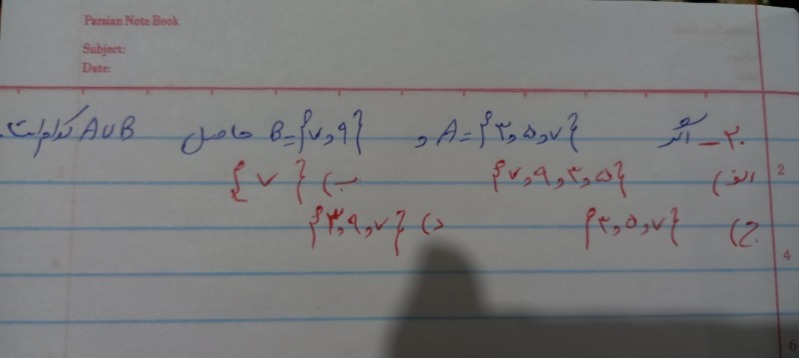 Parsian Note Book
Subject:
Date:
۲۰ـ اگر A={۳,۵,۷} , B={۷,۹} حاصل A∪B کدام است.
الف) {۷,۹,۳,۵} ب) {۷}
ج) {۳,۵,۷} د) {۳,۹,۷}
2
4
6